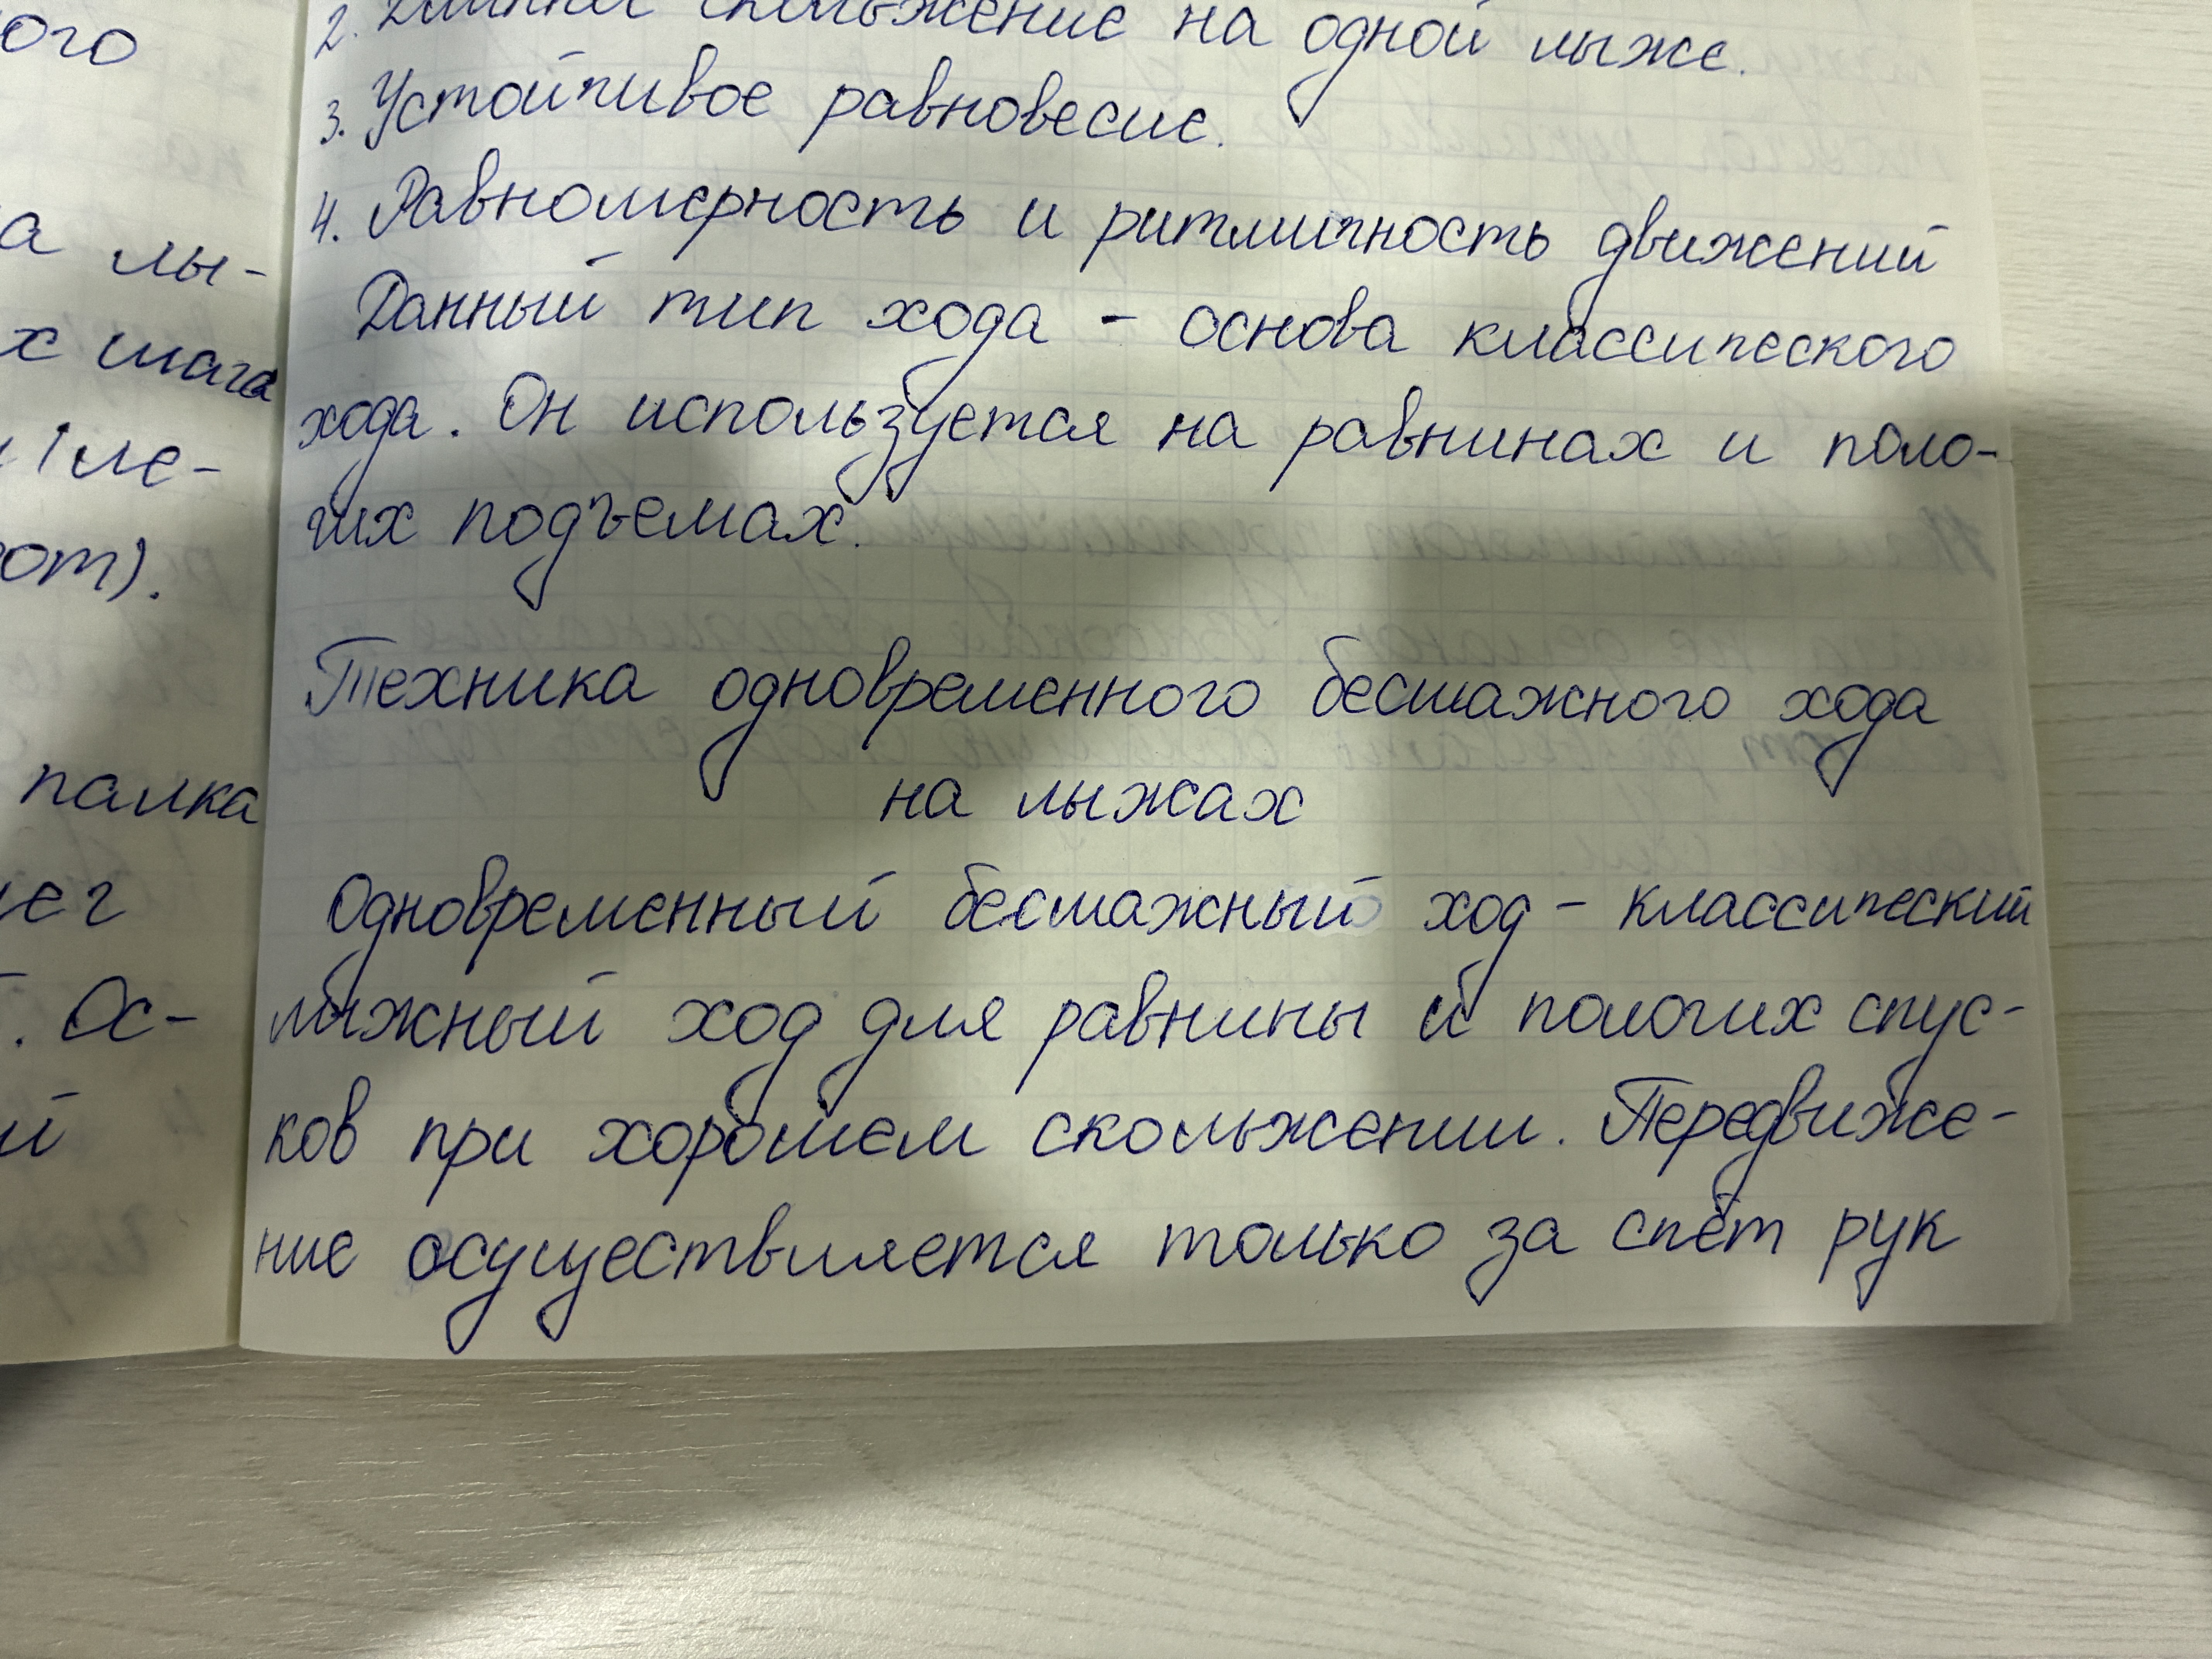 ого
а лы-
х шага
ле-
от).
палка
ег
. Ос-
й
2. скольжение на одной лыже.
3. Устойчивое равновесие.
4. Равномерность и ритмичность движений
Данный тип хода - основа классического
хода. Он используется на равнинах и поло-
гих подъемах.
Техника одновременного бесшажного хода
на лыжах
Одновременный бесшажный ход - классический
лыжный ход для равнины и пологих спус-
ков при хорошем скольжении. Передвиже-
ние осуществляется только за счёт рук